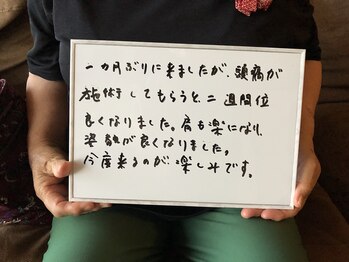 一カ月ぶりに来ましたが、頭痛が
施術してもらうと、二週間位
良くなりました。肩も楽になり、
姿勢が良くなりました。
今度来るのが楽しみです。